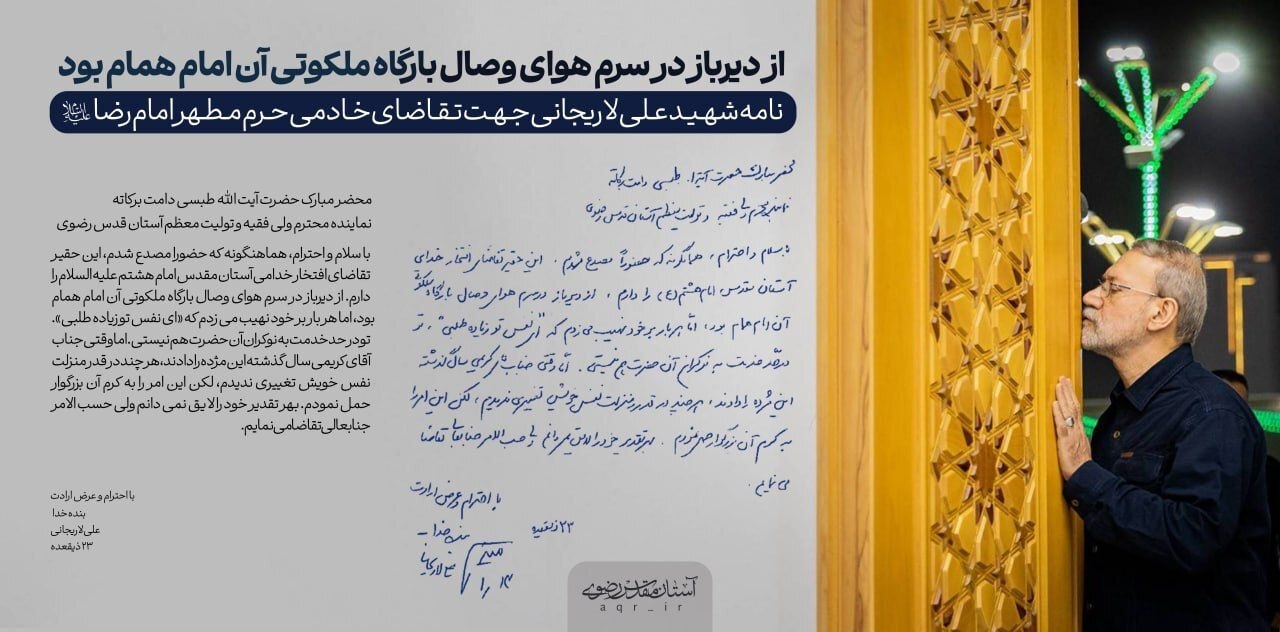 از دیرباز در سرم هوای وصال بارگاه ملکوتی آن امام همام بود
نامه شهید علی لاریجانی جهت تقاضای خادمی حرم مطهر امام رضا علیه‌السلام
محضر مبارک حضرت آیت الله طبسی دامت برکاته
نماینده محترم ولی فقیه و تولیت معظم آستان قدس رضوی
با سلام و احترام، هماهنگونه که حضورا مصدع شدم، این حقیر
تقاضای افتخار خدامی آستان مقدس امام هشتم علیه السلام را
دارم. از دیرباز در سرم هوای وصال بازگاه ملکوتی آن امام همام
بود، اما هر بار بر خود نهیب می زدم که «ای نفس تو زیاده طلبی».
تو در حد خدمت به نوکران آن حضرت هم نیستی. اما وقتی جناب
آقای کریمی سال گذشته این مژده را دادند، هر چند در قدر منزلت
نفس خویش تغییری ندیدم، لکن این امر را به کرم آن بزرگوار
حمل نمودم. بهر تقدیر خود را لایق نمی دانم ولی حسب الامر
جنابعالی تقاضا می نمایم.
با احترام و عرض ارادت
بنده خدا
علی لاریجانی
۲۳ ذیقعده
محضر مبارک حضرت آیة ا.. طبسی دامت برکاته
نماینده محترم ولی فقیه و تولیت معظم آستان قدس رضوی
با سلام و احترام، همانگونه که حضوراً مصدع شدم. این حقیر تقاضای افتخار خدامی
آستان مقدس امام هشتم (ع) را دارم، از دیرباز در سرم هوای وصال بارگاه ملکوتی
آن امام همام بود، اما هر بار بر خود نهیب می زدم که "ای نفس تو زیاده طلبی"، تو
در حد خدمت به نوکران آن حضرت هم نیستی. اما وقتی جناب آقای کریمی سال گذشته
این مژده را دادند، هر چند در قدر و منزلت نفس خویش تغییری ندیدم، لکن این امر را
به کرم آن بزرگوار حمل نمودم. بهر تقدیر خود را لایق نمی دانم ولی حسب الامر جنابعالی تقاضا
می نمایم.
با احترام و عرض ارادت
بنده خدا
علی لاریجانی
۲۳ ذیقعده
آستان مقدس رضوی
aqr_ir